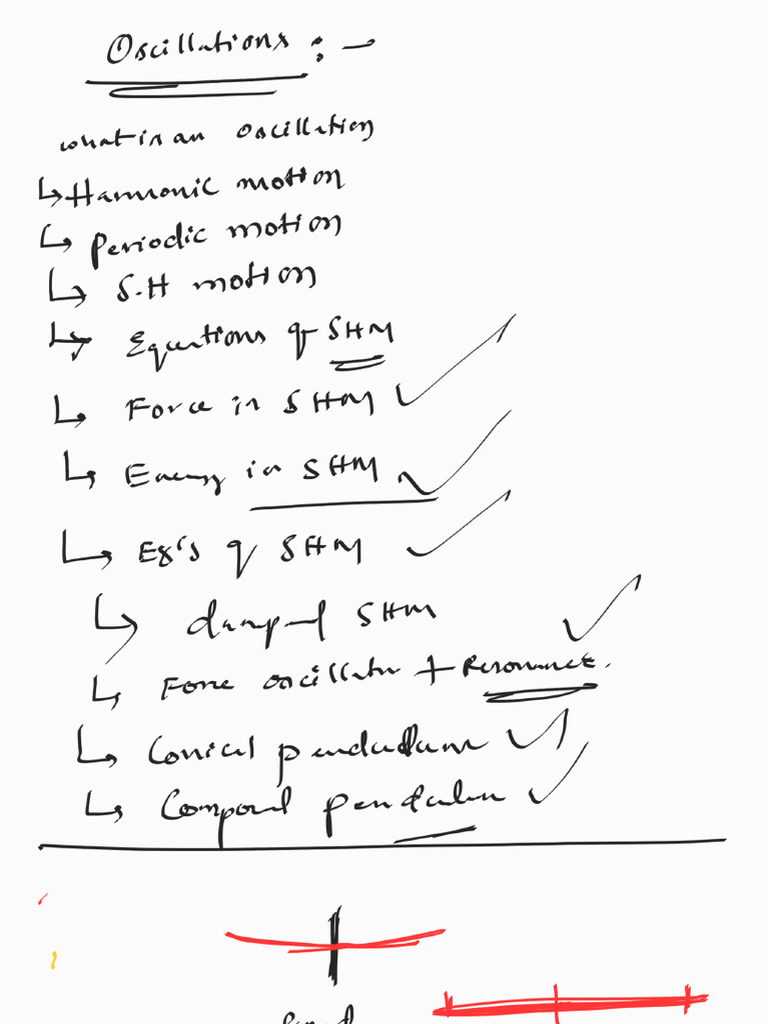 Oscillations :-
what is an oscillation
↳ Harmonic motion
↳ periodic motion
↳ S.H motion
↳ Equations of SHM
↳ Force in SHM ✓
↳ Energy in SHM ✓
↳ Eg's of SHM ✓
↳ damped SHM ✓
↳ Force oscillator + Resonance.
↳ Conical pendullum ✓
↳ Compound pendulum ✓